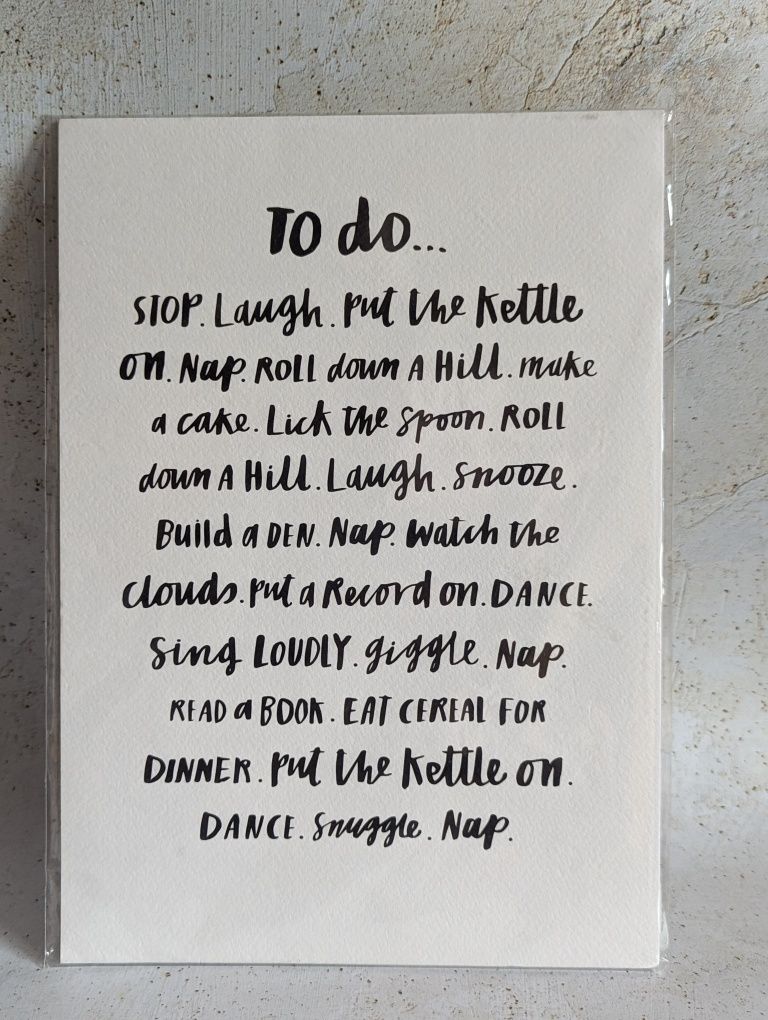 TO do...
STOP. Laugh. Put the Kettle
on. Nap. ROLL down A Hill. make
a cake. Lick the spoon. ROLL
down A Hill. Laugh. snooze.
Build a DEN. Nap. Watch the
clouds. Put a Record on. DANCE.
Sing LOUDLY. giggle. Nap.
READ a BOOK. EAT CEREAL FOR
DINNER. Put the Kettle on.
DANCE. Snuggle. Nap.